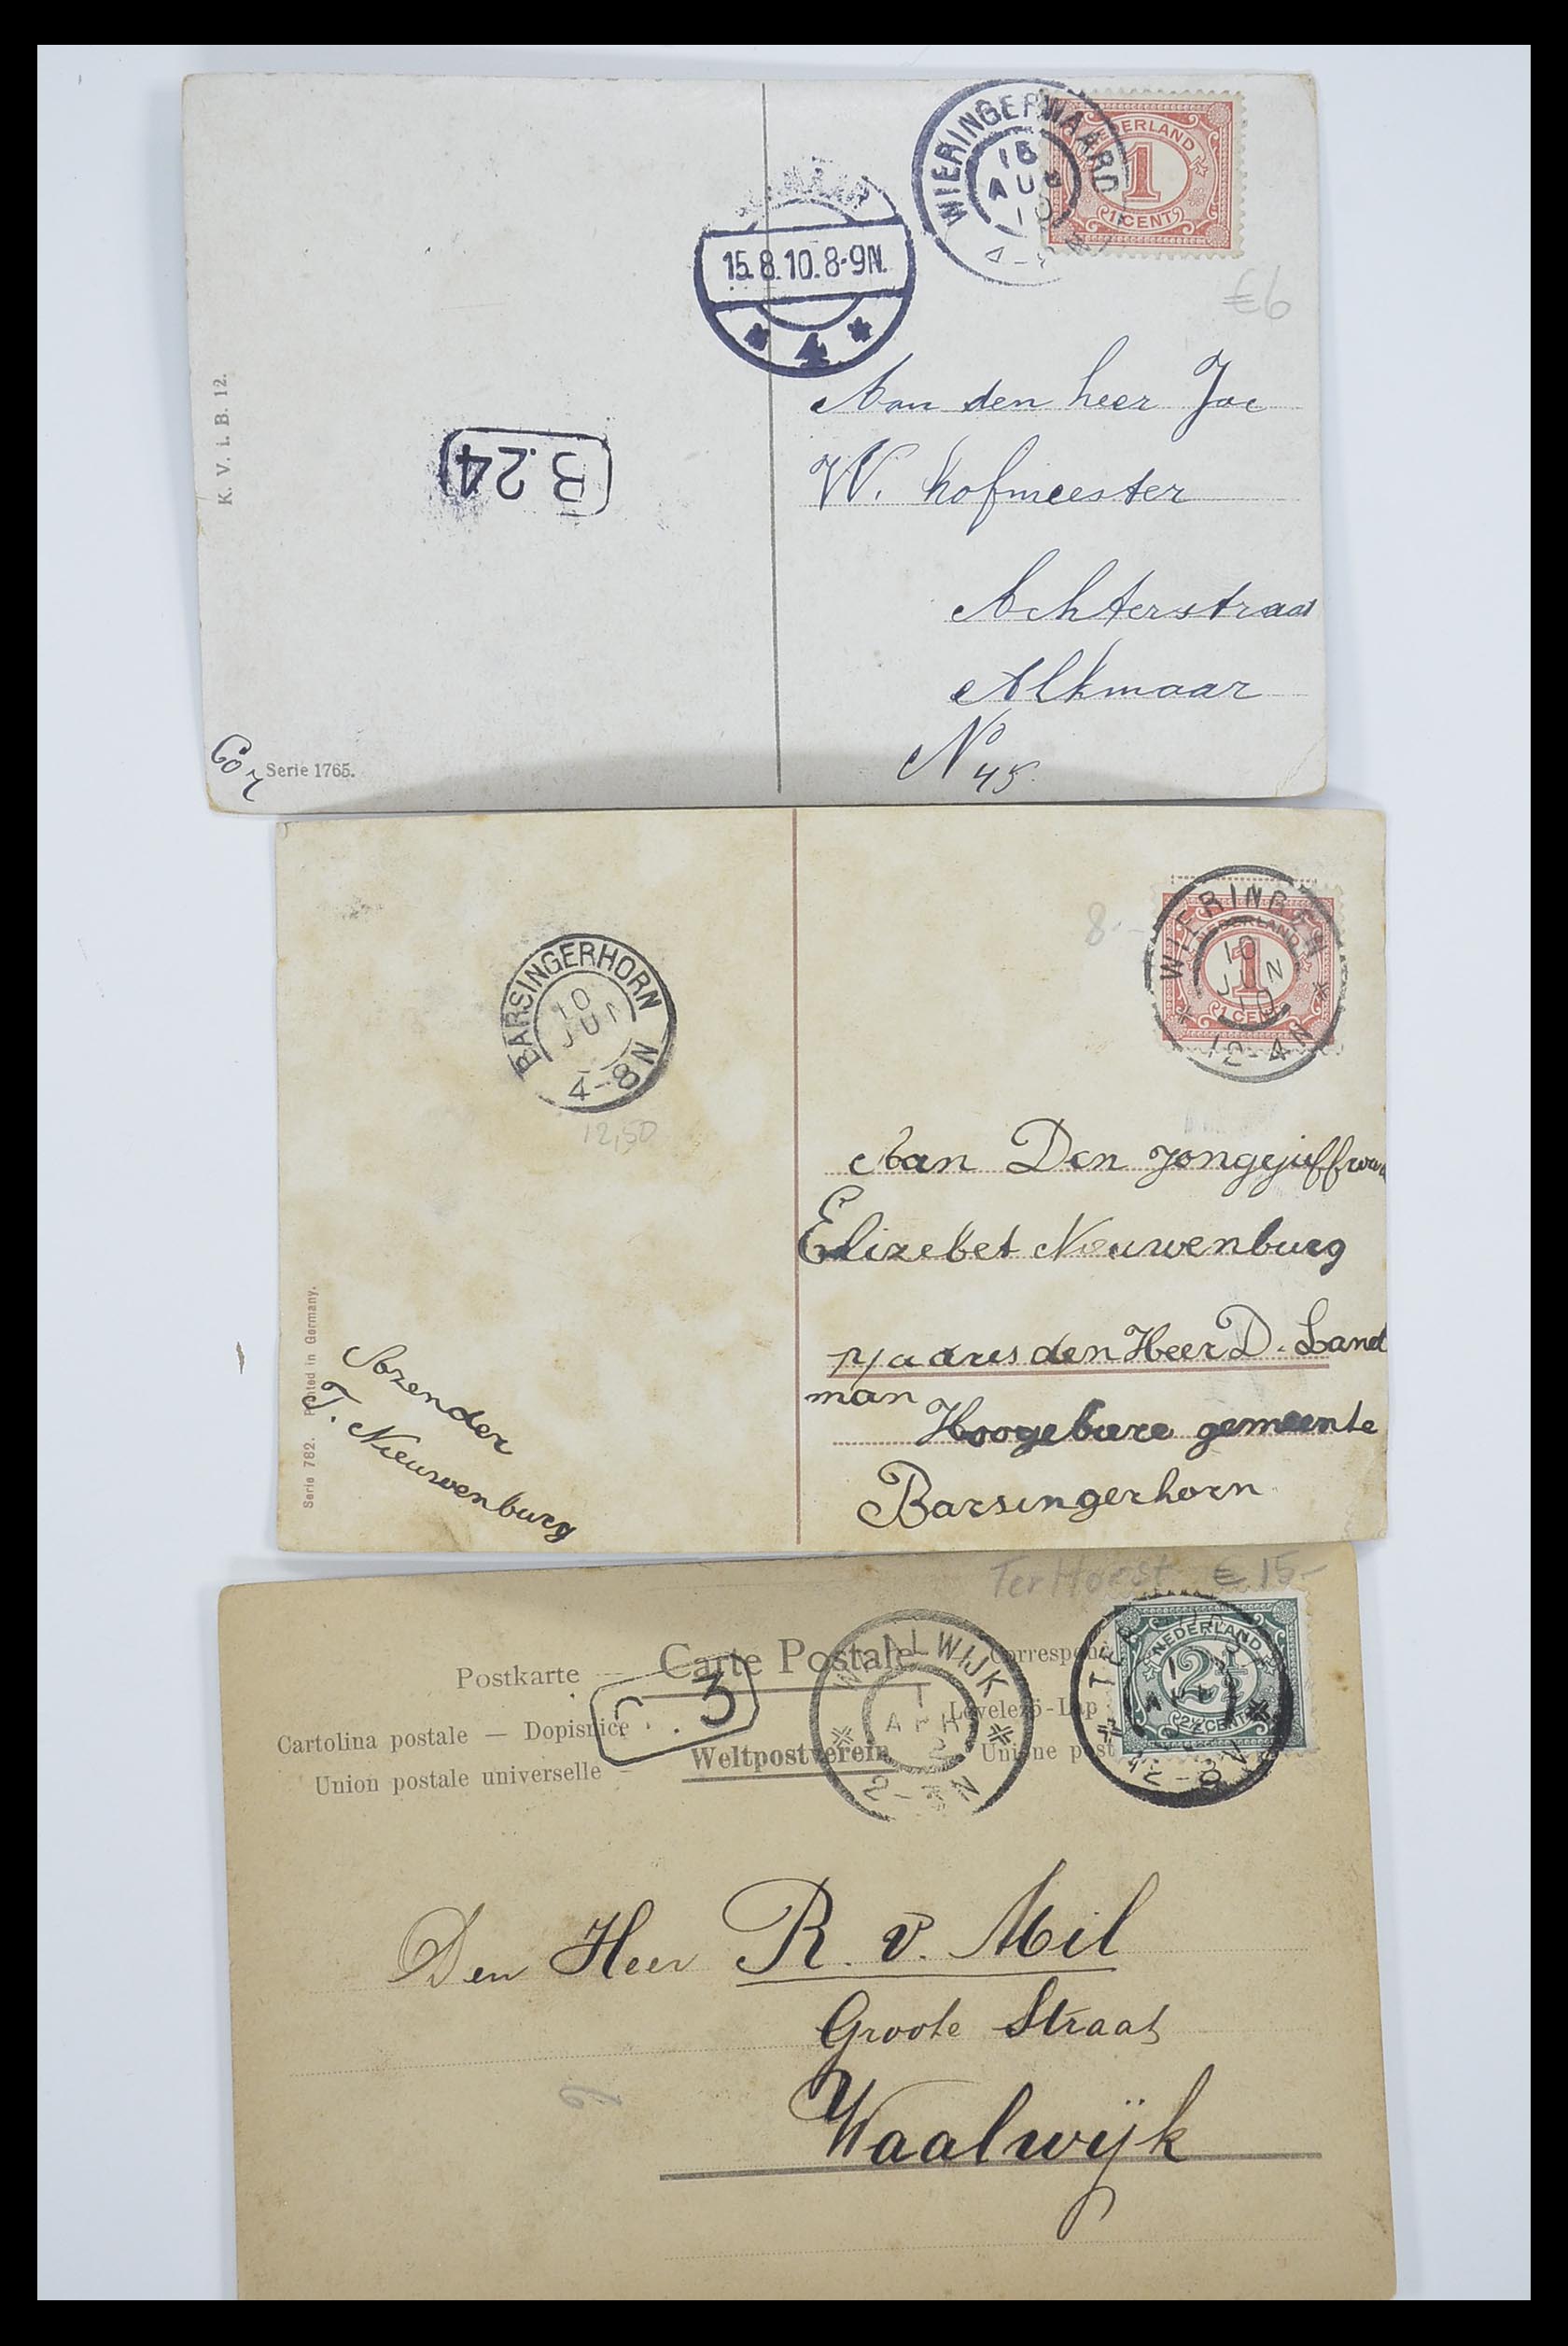 WIERINGERWAARD
15
AU
10
NEDERLAND
1
1 CENT
15.8.10.8-9N.
4
€6
Aan den heer Jac
W. Hofmeester
Achterstraat
Alkmaar
No 45.
K. V. i. B. 12.
B.24
Serie 1765.
BARSINGERHORN
10
JUN
4-8N
12,50
8.-
WIERINGEN
10
JUN
10
12-4N
NEDERLAND
1
1 CENT
Aan Den Jongejuffrouw
Elizebet Nieuwenburg
p/a adres den Heer D. Land
man
Hoogebiere gemeente
Barsingerhorn
Serie 782. Printed in Germany.
Afzender
T. Nieuwenburg
Ter Horst € 15-
Postkarte — Carte Postale
Cartolina postale — Dopisnice
Levelező-Lap
Union postale universelle
Weltpostverein
3
WAALWIJK
1
APR
2-3N
NEDERLAND
2½
2½ CENT
Den Heer R. v. Mil
Groote Straat
Waalwijk